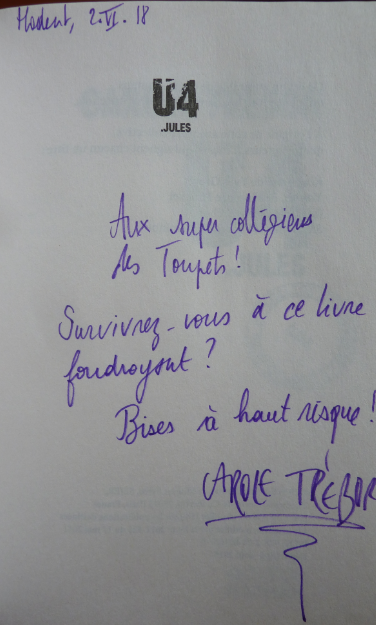 Hodent, 2.VI.18
U4
.JULES
Aux super collégiens
des Toupets !
Survivrez-vous à ce livre
foudroyant ?
Bises à haut risque !
CAROLE TRÉBOR